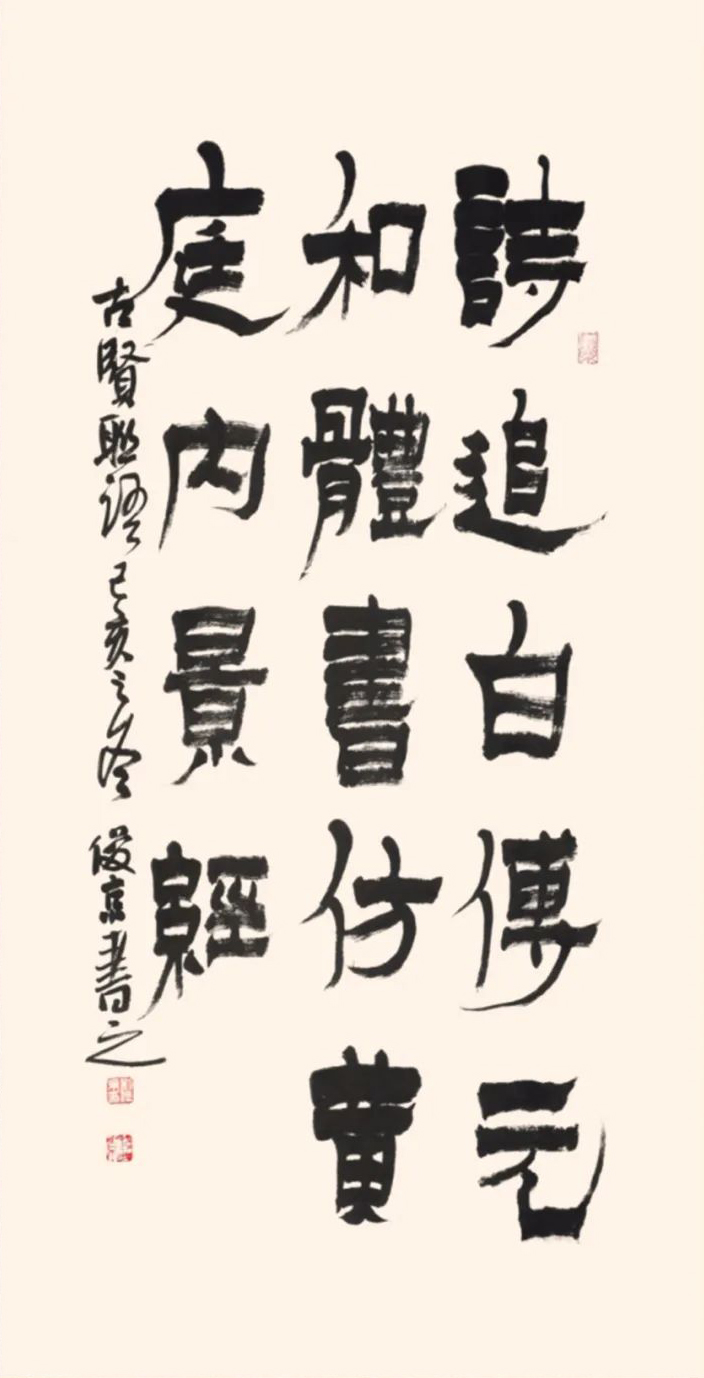 詩追白傅元
和體書仿黄
庭内景經
古賢聯語己亥之冬 俊京書之